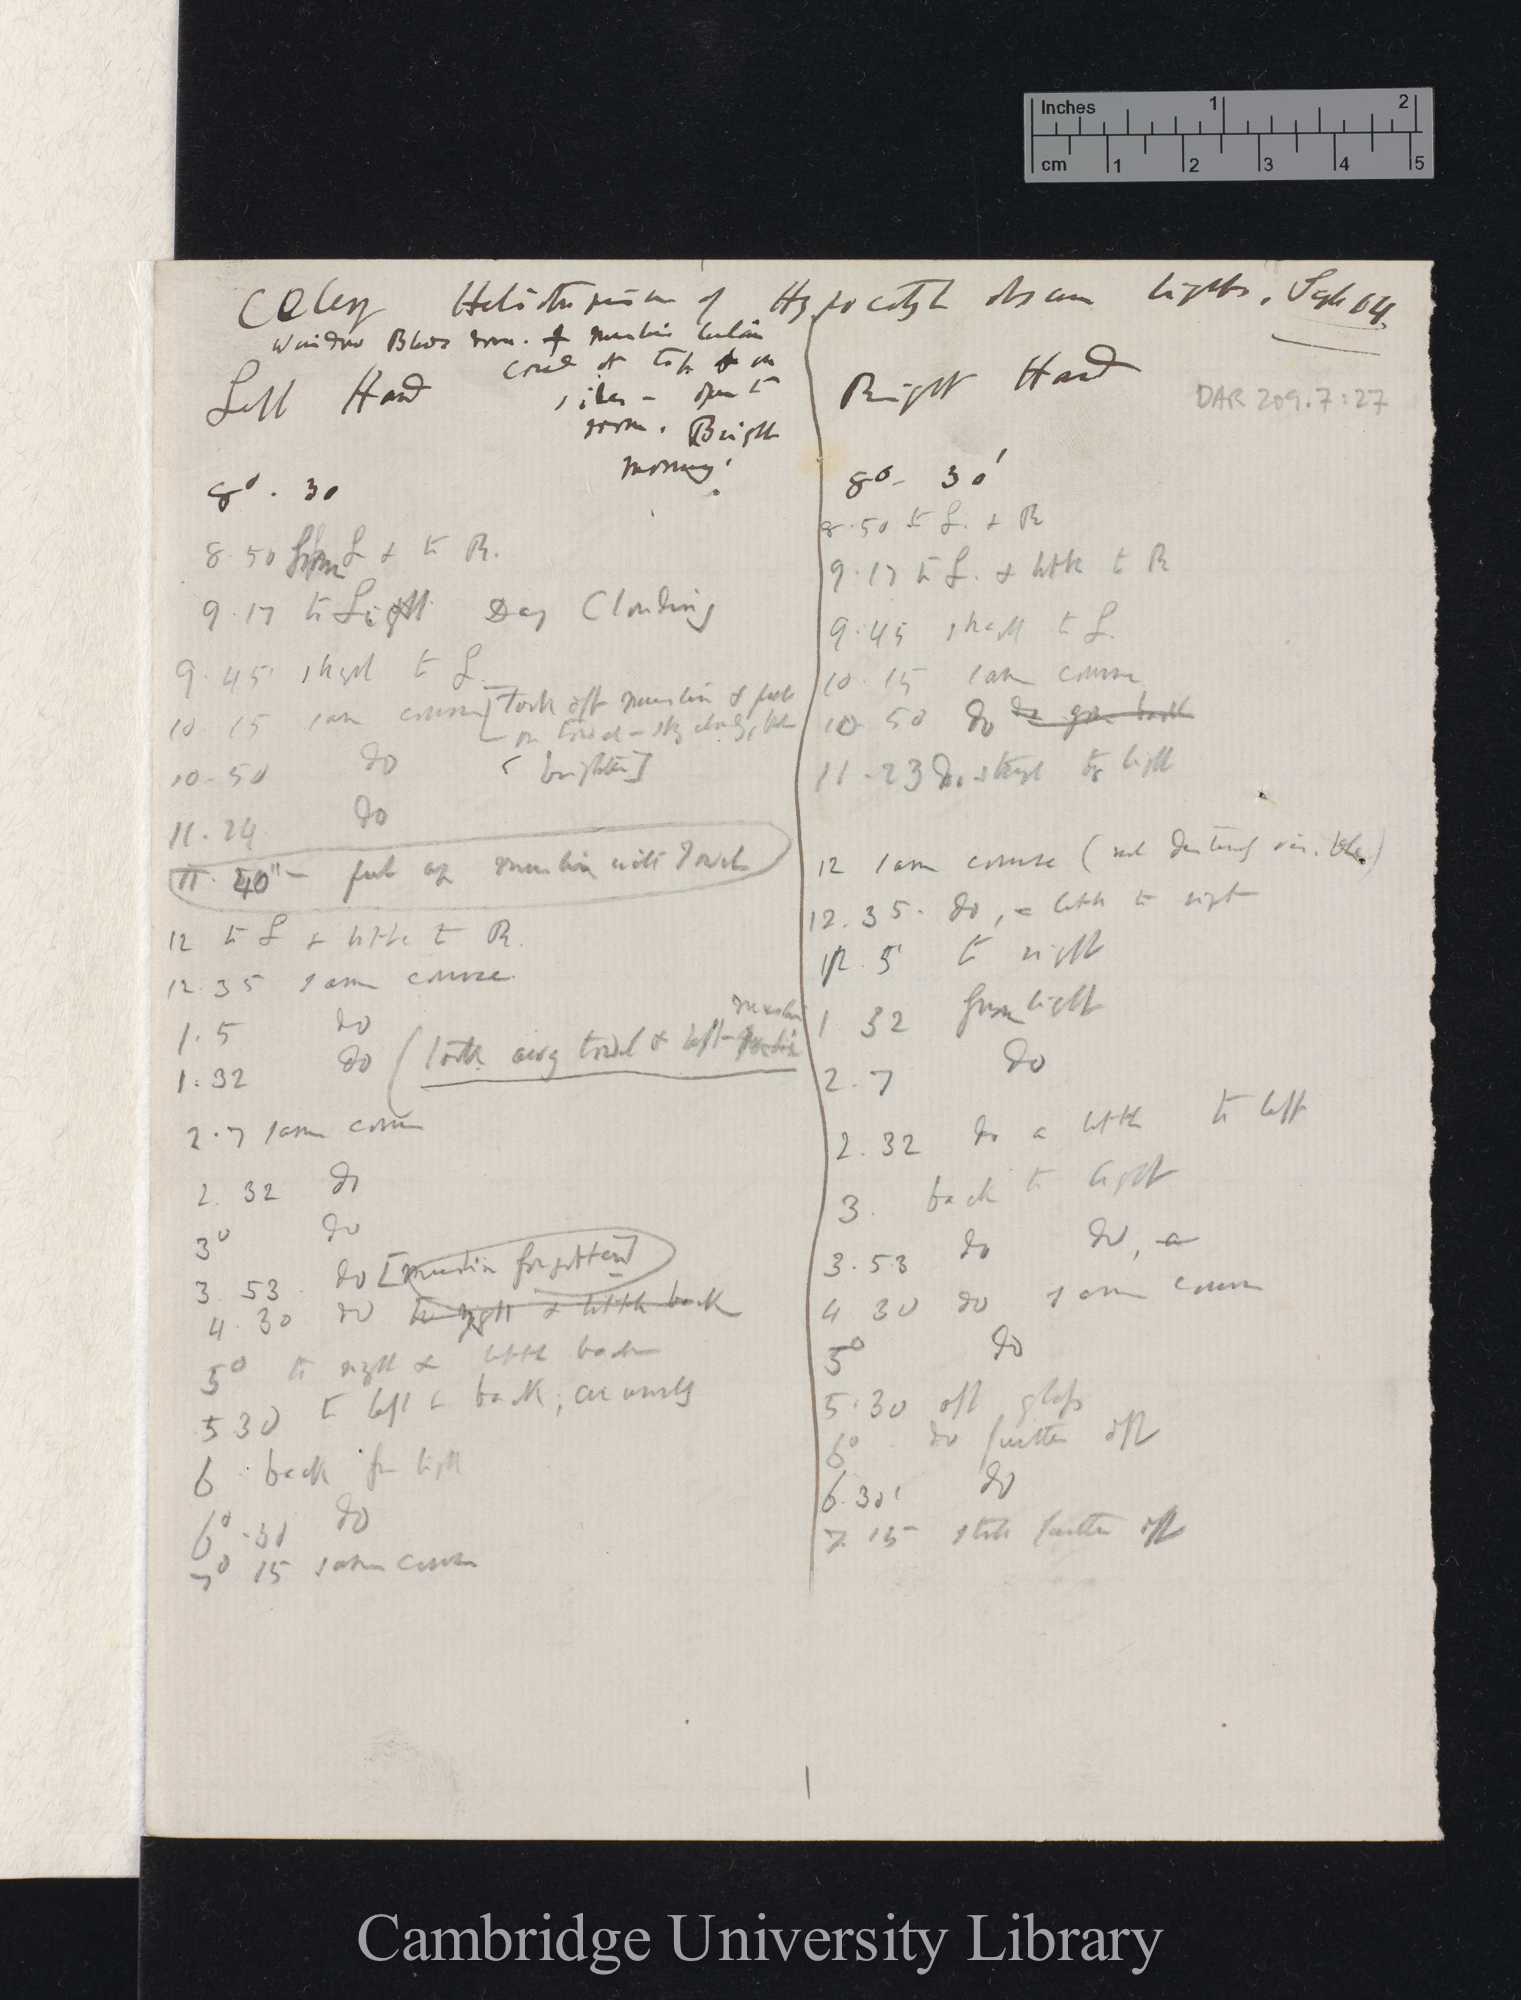 Inches 1 2
cm 1 2 3 4 5
Celery Heliotropism of Hypocotyls obscure lights. Sept 14
Window Blinds down. & muslin
at top & on
sides - open to
room. Bright
morning.
Left Hand
8° . 30
8.50 from L & to R.
9.17 to Light Day Clouding
9.45 straight to L
10 15 same course [Took off muslin & put
on towel - sky cloudy, but
brighter]
10.50 do
11.24 do
11. 40" - put up muslin with towel
12 to L & little to R.
12.35 same course
1.5 do
1.32 do (took away towel & left muslin
2.7 same course
2. 32 do
3° do
3. 53 do [muslin forgotten]
4.30 do to right & little back
5° to right & little back
5 30 to left & back;
6 back from light
6° .30 do
7° 15 same course
Right Hand
DAR 209.7:27
8° - 30'
8.50 to L. & R
9.17 to L. & little to R
9.45 straight to L.
10.15 same course
10 50 do do gone back
11.23 do. straight to light
12 same course (not
12.35. do, - little to right
12. 5 to right
1 32 from light
2.7 do
2.32 do a little to left
3. back to light
3.53 do do, a
4 30 do same course
5° do
5.30 off glass
6° do further off
6.30' do
7. 15 still further off
Cambridge University Library